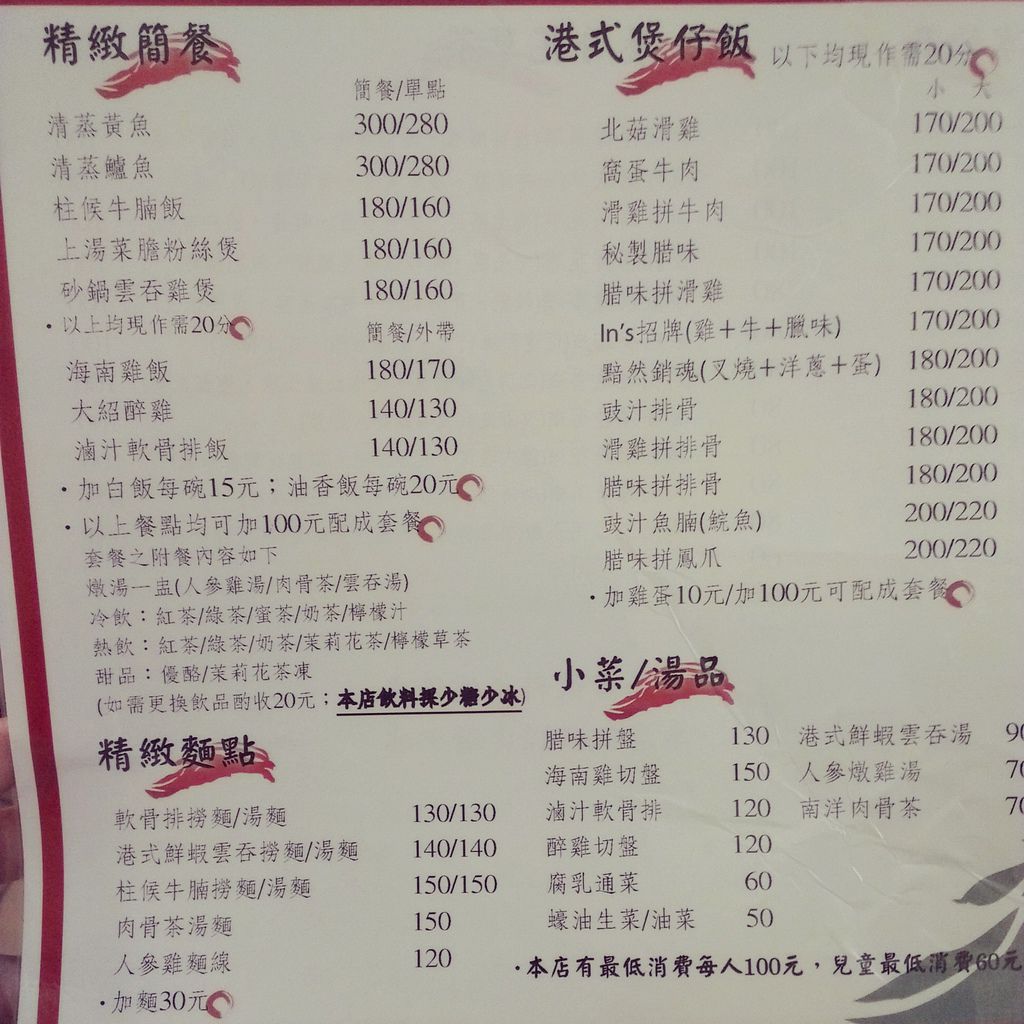 精緻簡餐
簡餐/單點
清蒸黃魚 300/280
清蒸鱸魚 300/280
柱候牛腩飯 180/160
上湯菜膽粉絲煲 180/160
砂鍋雲吞雞煲 180/160
・以上均現作需20分
簡餐/外帶
海南雞飯 180/170
大紹醉雞 140/130
滷汁軟骨排飯 140/130
・加白飯每碗15元；油香飯每碗20元
・以上餐點均可加100元配成套餐
套餐之附餐內容如下
燉湯一盅(人參雞湯/肉骨茶/雲吞湯)
冷飲：紅茶/綠茶/蜜茶/奶茶/檸檬汁
熱飲：紅茶/綠茶/奶茶/茉莉花茶/檸檬草茶
甜品：優酪/茉莉花茶凍
(如需更換飲品酌收20元；本店飲料採少糖少冰)
精緻麵點
軟骨排撈麵/湯麵 130/130
港式鮮蝦雲吞撈麵/湯麵 140/140
柱候牛腩撈麵/湯麵 150/150
肉骨茶湯麵 150
人參雞麵線 120
・加麵30元
港式煲仔飯 以下均現作需20分
小 大
北菇滑雞 170/200
窩蛋牛肉 170/200
滑雞拼牛肉 170/200
秘製腊味 170/200
腊味拼滑雞 170/200
In's招牌(雞＋牛＋臘味) 170/200
黯然銷魂(叉燒＋洋蔥＋蛋) 180/200
豉汁排骨 180/200
滑雞拼排骨 180/200
腊味拼排骨 180/200
豉汁魚腩(鯇魚) 200/220
腊味拼鳳爪 200/220
・加雞蛋10元/加100元可配成套餐
小菜/湯品
腊味拼盤 130 港式鮮蝦雲吞湯 90
海南雞切盤 150 人參燉雞湯 70
滷汁軟骨排 120 南洋肉骨茶 70
醉雞切盤 120
腐乳通菜 60
蠔油生菜/油菜 50
・本店有最低消費每人100元，兒童最低消費60元